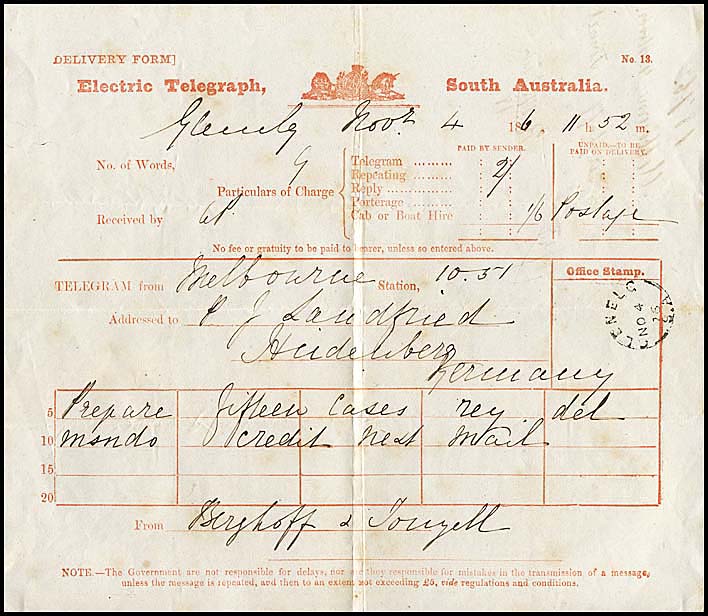 DELIVERY FORM] No. 13.
Electric Telegraph, South Australia.
Glenelg Novr 4 186 6. 11 h. 52 m.
PAID BY SENDER. UNPAID.—TO BE PAID ON DELIVERY.
No. of Words, 9 Particulars of Charge
Telegram ......... 2/
Repeating .........
Reply ...............
Porterage .........
Cab or Boat Hire 1/6 Postage
Received by
No fee or gratuity to be paid to bearer, unless so entered above.
TELEGRAM from Melbourne Station, 10.51 Office Stamp.
Addressed to P J Landfried
Heidenberg
Germany
GLENELG S.A. NO 4
5 Prepare fifteen cases rey del
10 mondo credit next mail
15
20
From Berghoff & Touzell
NOTE.—The Government are not responsible for delays, nor are they responsible for mistakes in the transmission of a message,
unless the message is repeated, and then to an extent not exceeding £5, vide regulations and conditions.